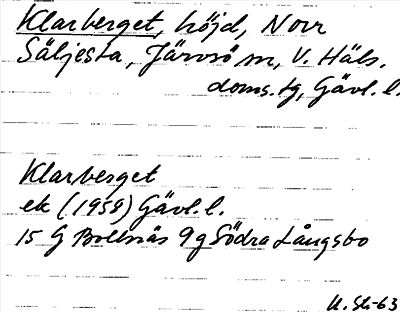 Klarberget, höjd, Norr
Säljesta, Järvsö sn, V. Häls.
doms.tg, Gävl. l.
Klarberget
ek (1958) Gävl. l.
15 G Bollnäs 9g Södra Långsbo
U. St-63